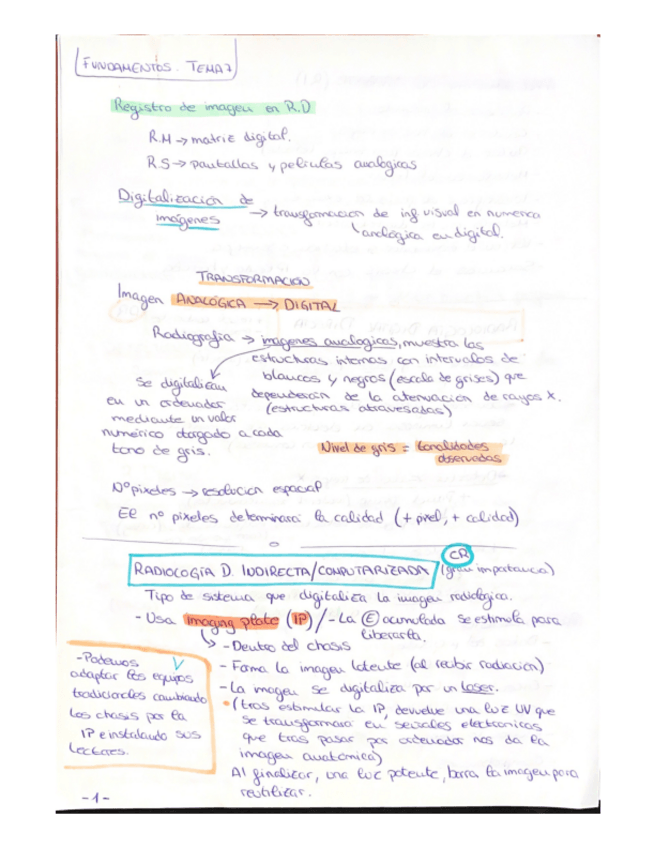 FUNDAMENTOS. TEMA 7
Registro de imagen en R.D
R.M → matriz digital.
R.S → pantallas y películas analógicas
Digitalización de → transformación de inf visual en numérica
imágenes
analógica en digital.
TRANSFORMACIÓN
Imagen ANALÓGICA → DIGITAL
Radiografía → imágenes analógicas, muestra las
estructuras internas con intervalos de
blancos y negros (escala de grises) que
dependerán de la atenuación de rayos X.
(estructuras atravesadas)
Se digitalizan
en un ordenador
mediante un valor
numérico otorgado a cada
tono de gris.
Nivel de gris = tonalidades
observadas
Nº pixeles → resolucion espacial
El nº pixeles determinará la calidad (+ pixel, + calidad)
CR
RADIOLOGÍA D. INDIRECTA/COMPUTARIZADA (gran importancia)
Tipo de sistema que digitaliza la imagen radiológica.
- Usa imaging plate (IP) / - La E acumulada se estimula para
liberarla.
- Dentro del chasis
- Forma la imagen latente (al recibir radiación)
- La imagen se digitaliza por un laser.
• (tras estimular la IP, devuelve una luz UV que
se transformará en señales electronicas
que tras pasar por ordenador nos da la
imagen anatómica)
Al finalizar, una luz potente, borra la imagen para
reutilizar.
- Podemos
adaptar los equipos
tradicionales cambiando
los chasis por la
IP e instalando sus
lectores.
-1-